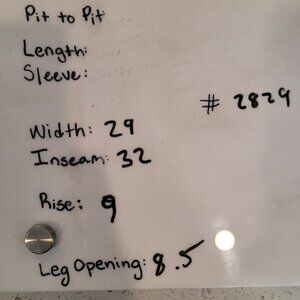 Pit to Pit
Length:
Sleeve:
# 2829
Width: 29
Inseam: 32
Rise: 9
Leg Opening: 8.5